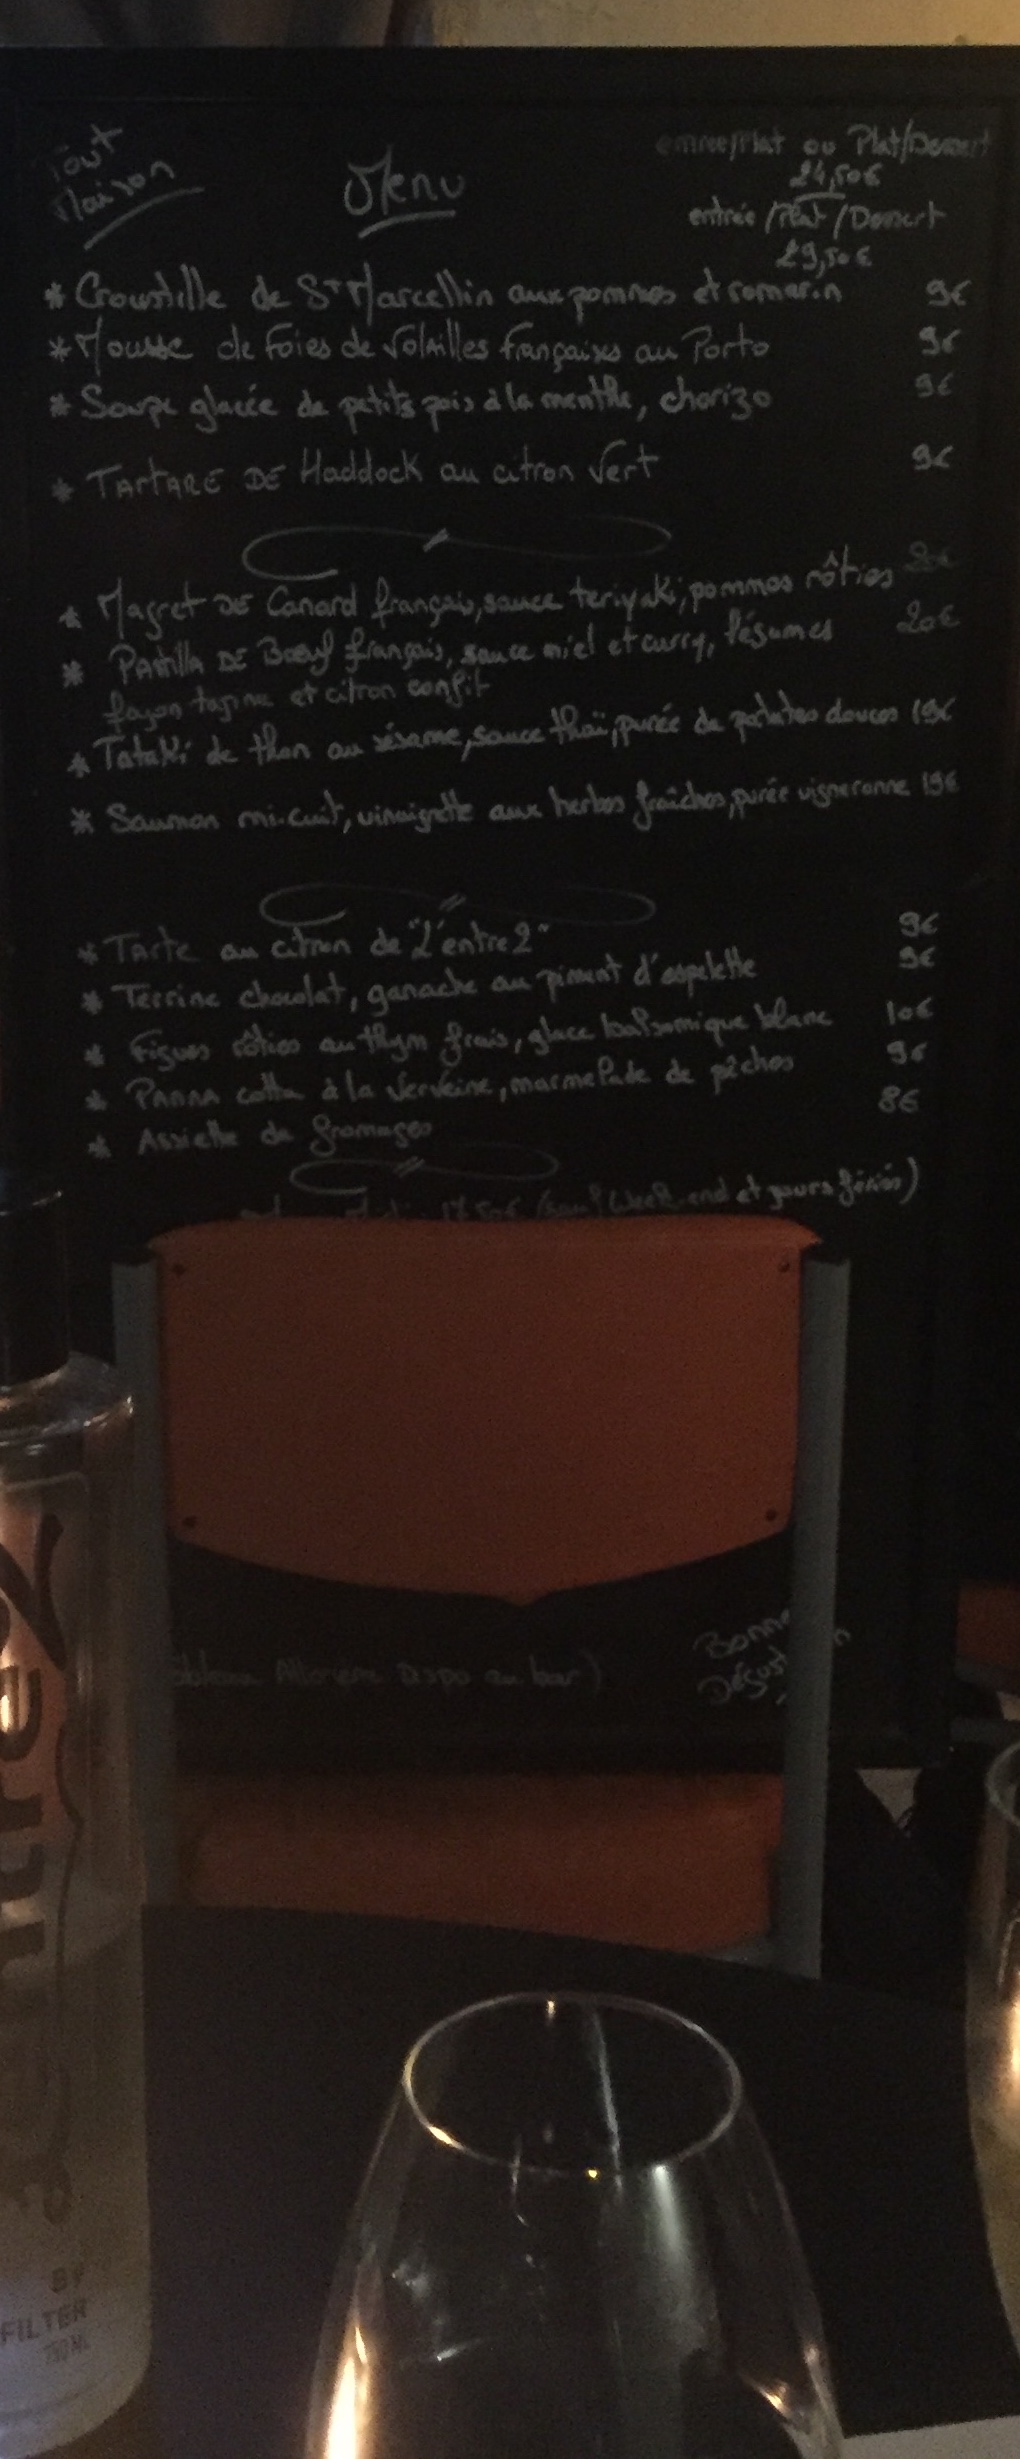 Tout
Maison
Menu
entrée/Plat ou Plat/Dessert
24,50€
entrée/Plat/Dessert
29,50€
* Croustille de St Marcellin aux pommes et romarin 9€
* Mousse de foies de Volailles françaises au Porto 9€
* Soupe glacée de petits pois à la menthe, chorizo 9€
* TARTARE DE Haddock au citron vert 9€
* Magret DE Canard français, sauce teriyaki, pommes rôties
* Pastilla DE Boeuf français, sauce miel et curry, légumes 20€
façon tagine et citron confit
* Tataki de thon au sésame, sauce thaï, purée de patates douces 19€
* Saumon mi-cuit, vinaigrette aux herbes fraîches, purée vigneronne 19€
* Tarte au citron de "L'entre2" 9€
* Terrine chocolat, ganache au piment d'espelette 9€
* Figues rôties au thym frais, glace balsamique blanc 10€
* PANNA cotta à la verveine, marmelade de pêches 9€
* Assiette de fromages 8€
(sauf Week-end et jours fériés)
Allergène Dispo au bar)
Bonne
Dégust
BY
FILTER
750 ML